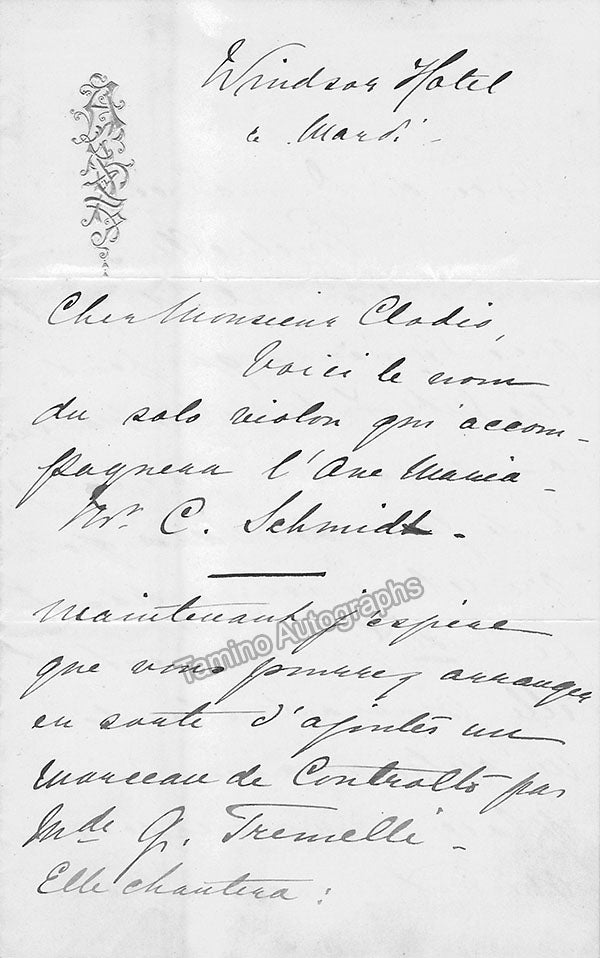 Windsor Hotel
ce Mardi -
Cher Monsieur Clodio,
Voici le nom
du solo violon qui accom-
pagnera l'Ave Maria -
Mr. C. Schmidt -
Maintenant j'espère
que vous pourrez arranger
en sorte d'ajouter un
morceau de Contralto par
Mde G. Tremelli -
Elle chantera :
Tamino Autographs